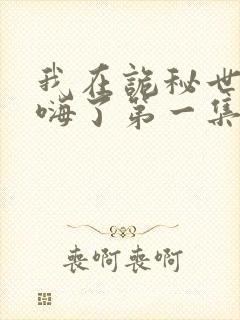 我在詭秘世
嗨了第一集
喪啊喪啊